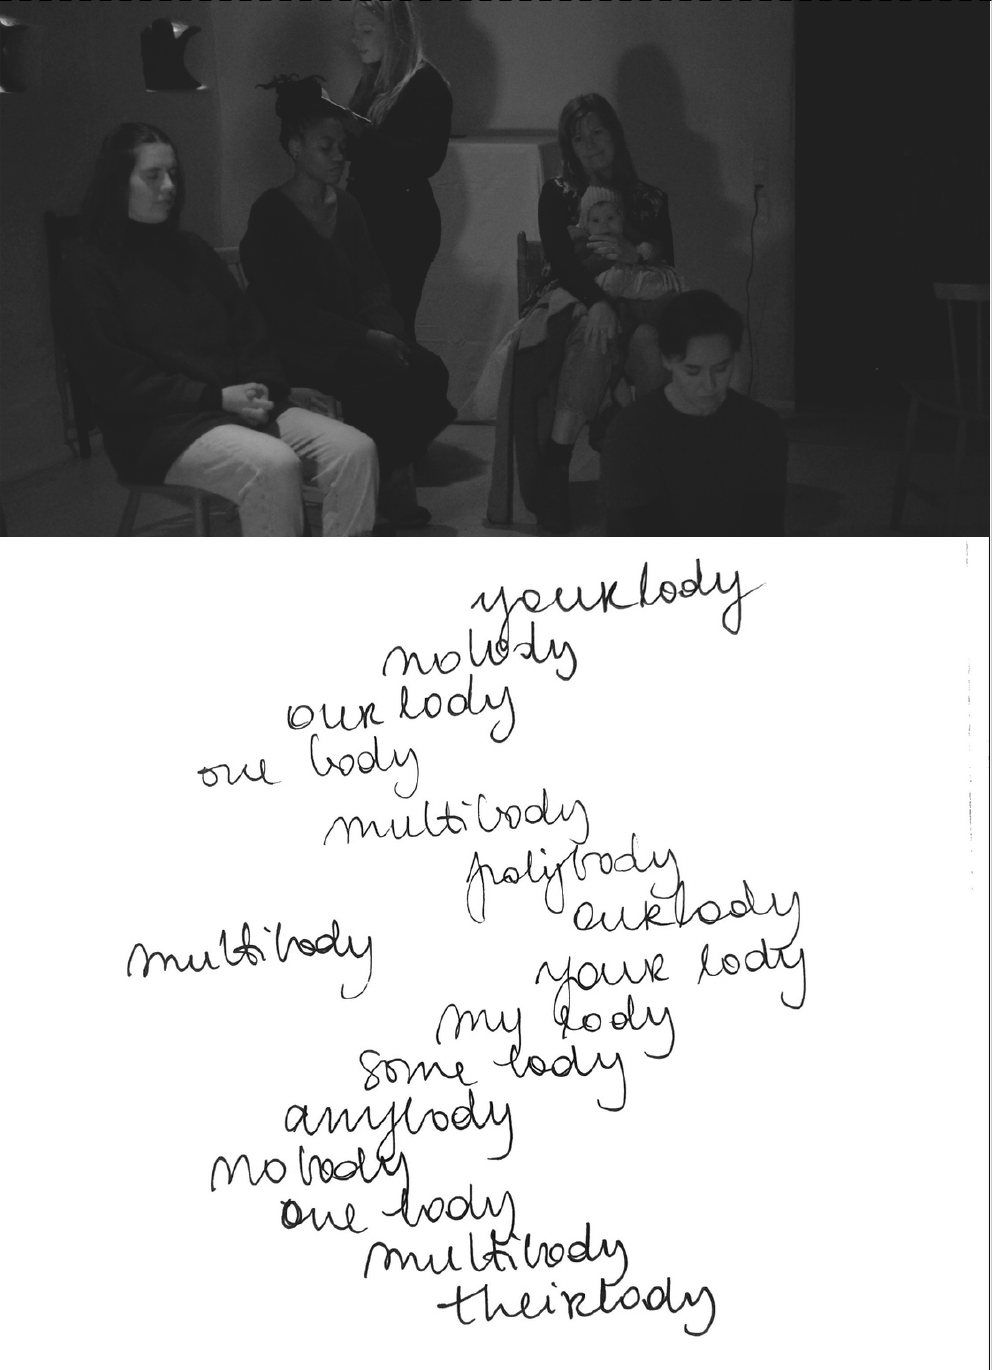 yourbody
nobody
our body
one body
multibody
polybody
ourbody
multibody
your body
my body
some body
anybody
nobody
one body
multibody
theirbody